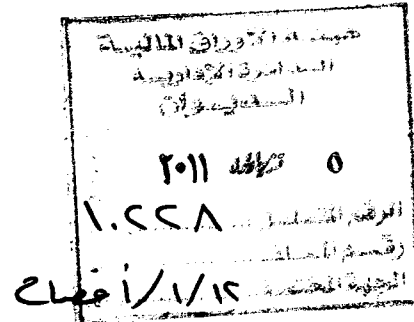 هيئة الأوراق المالية
الدائرة الإدارية
الديوان
٥ ٢٠١١
الرقم المتسلسل ١٠٢٢٨
رقم الملف
الجهة المختصة ١/١/١٢ / أفصاح